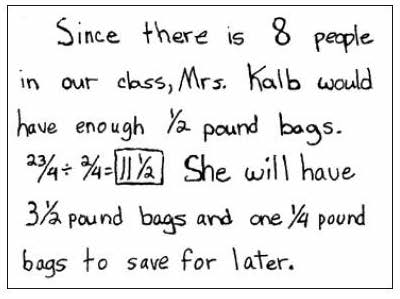 Since there is 8 people
in our class, Mrs. Kalb would
have enough ½ pound bags.
23/4 ÷ 2/4 = 11 ½ She will have
3 ½ pound bags and one ¼ pound
bags to save for later.